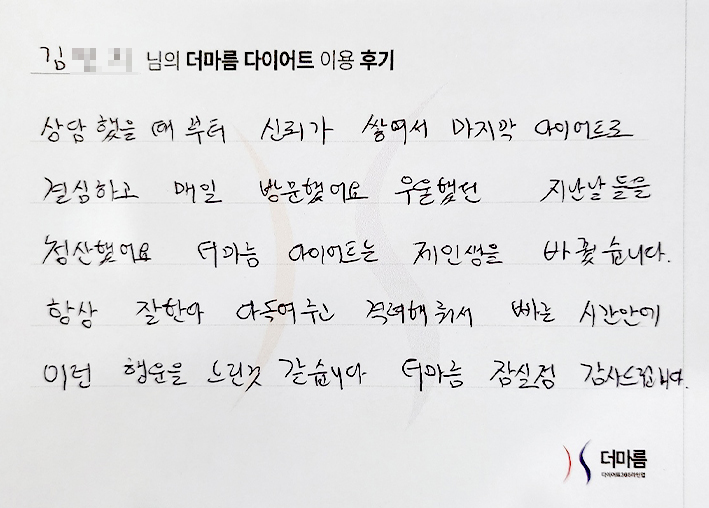 김 님의 더마름 다이어트 이용 후기
상담 했을 때 부터 신뢰가 쌓여서 마지막 다이어트로
결심하고 매일 방문했어요 우울했던 지난날들을
청산했어요 더마름 다이어트는 제인생을 바꿨습니다.
항상 잘한다 다독여주고 격려해줘서 빠른 시간안에
이런 행운을 느린것 같습니다 더마름 잠실점 감사드립니다.
더마름